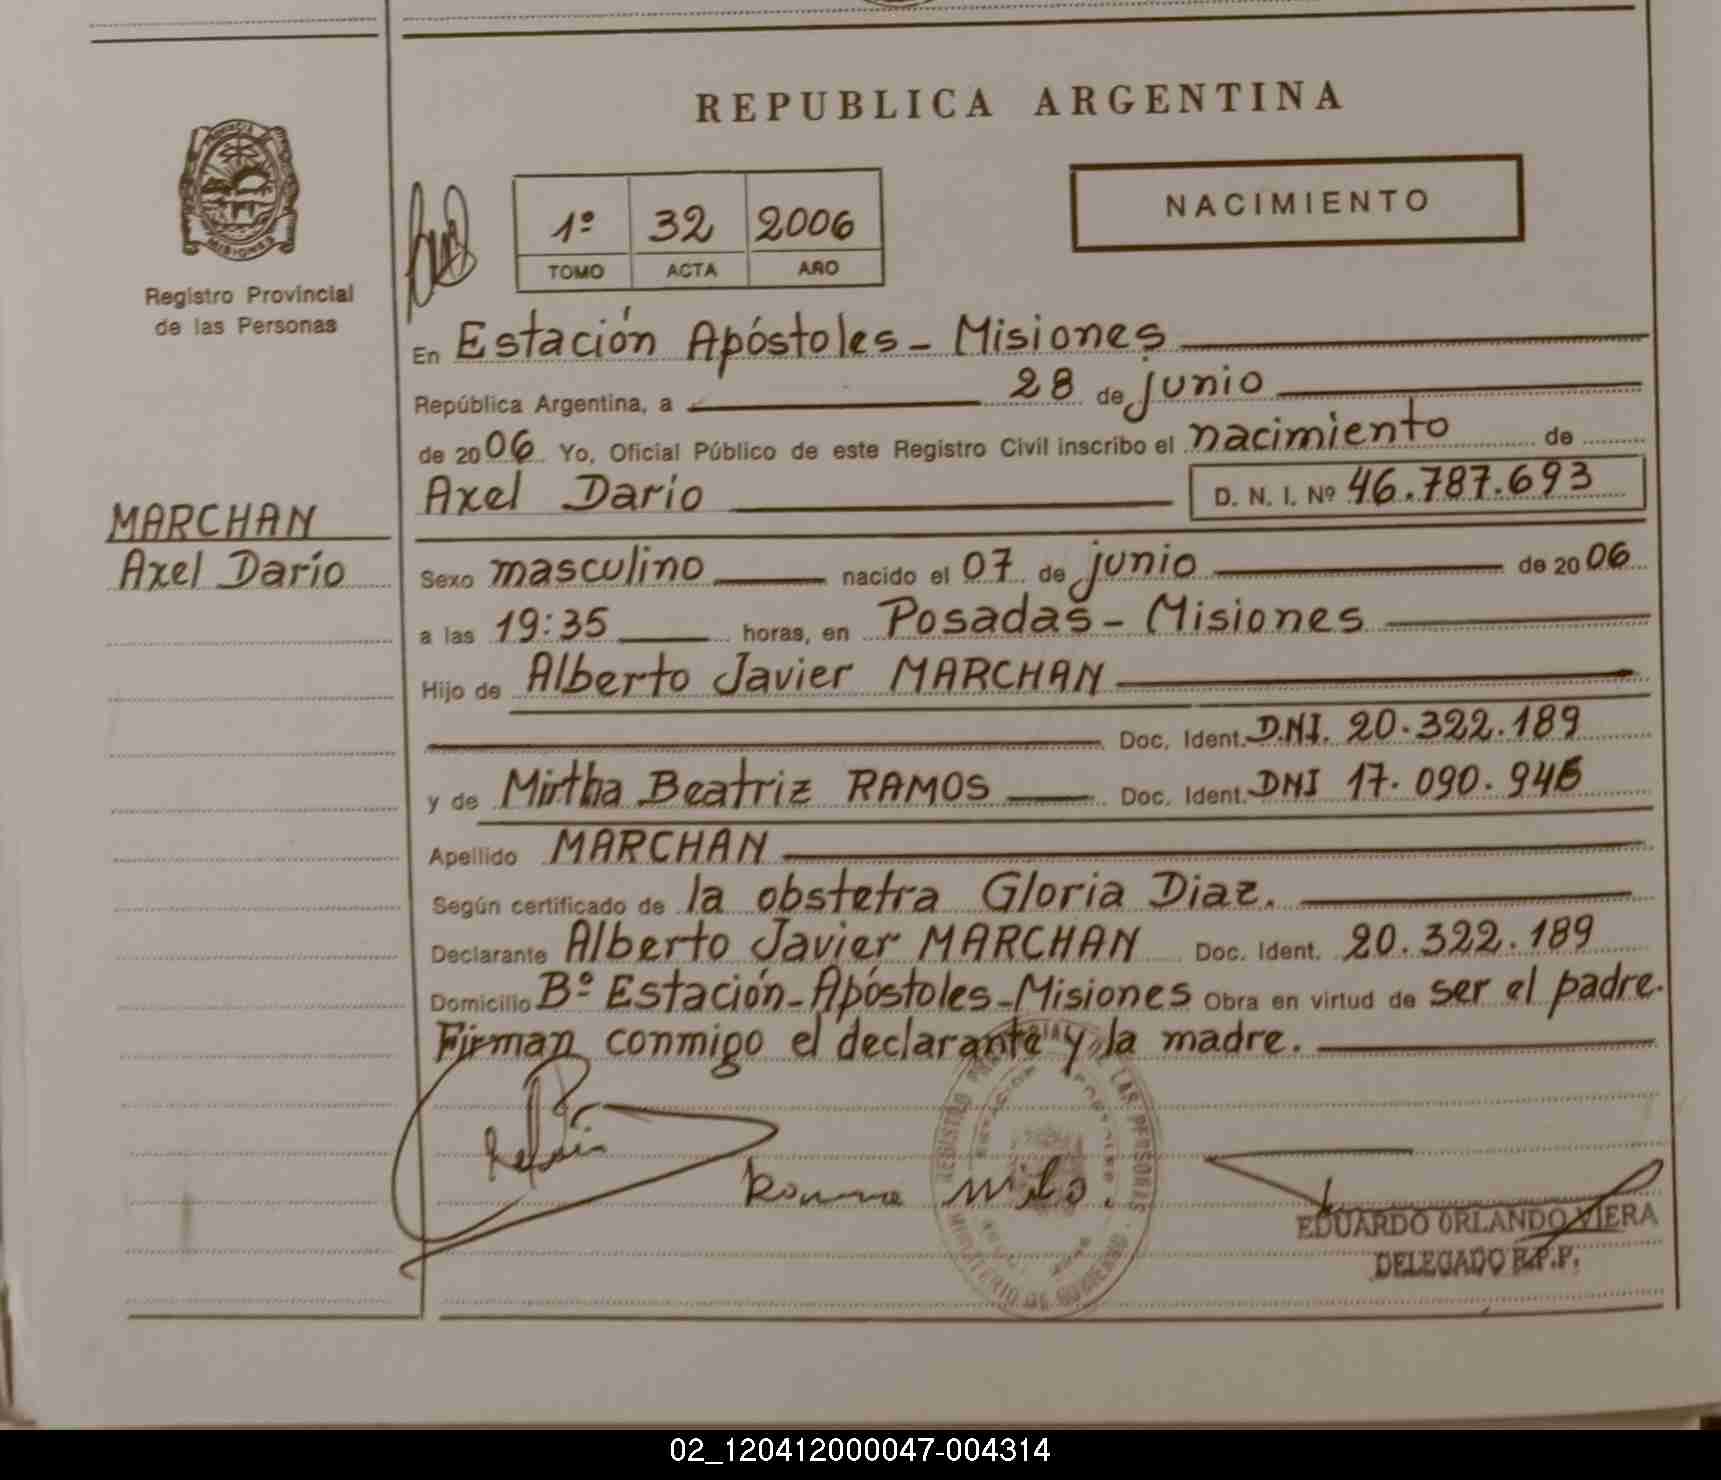 REPUBLICA ARGENTINA
NACIMIENTO
1º 32 2006
TOMO ACTA AÑO
MISIONES
Registro Provincial
de las Personas
En Estación Apóstoles - Misiones
República Argentina, a 28 de junio
de 2006 Yo, Oficial Público de este Registro Civil inscribo el nacimiento de
Axel Dario D. N. I. Nº 46.787.693
MARCHAN
Axel Darío
Sexo masculino nacido el 07 de junio de 2006
a las 19:35 horas, en Posadas - Misiones
Hijo de Alberto Javier MARCHAN
Doc. Ident. D.N.I. 20.322.189
y de Mirtha Beatriz RAMOS Doc. Ident. DNI 17.090.94
Apellido MARCHAN
Según certificado de la obstetra Gloria Diaz.
Declarante Alberto Javier MARCHAN Doc. Ident. 20.322.189
Domicilio Bº Estación - Apóstoles - Misiones Obra en virtud de ser el padre.
Firman conmigo el declarante y la madre.
REGISTRO PROVINCIAL DE LAS PERSONAS
MINISTERIO DE GOBIERNO
EDUARDO ORLANDO VIERA
DELEGADO R.P.P.
02_120412000047-004314